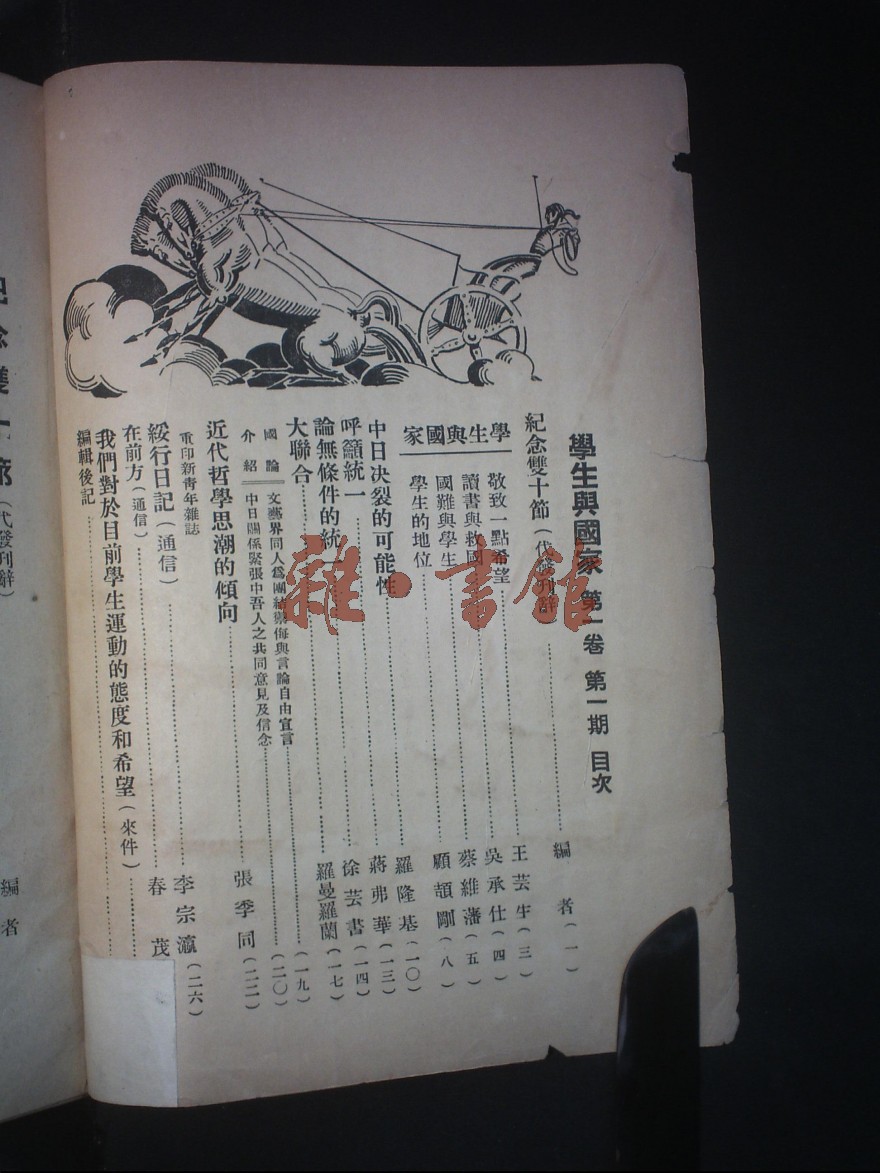 學生與國家 第一卷 第一期 目次
紀念雙十節（代發刊辭）……編者（一）
學生與國家
敬致一點希望……王芸生（三）
讀書與救國……吳承仕（四）
國難與學生……蔡維藩（五）
學生的地位……顧頡剛（八）
中日決裂的可能性……羅隆基（一〇）
呼籲統一……蔣弗華（一三）
論無條件的統一……徐芸書（一四）
大聯合……羅曼羅蘭（一七）
國論介紹
文藝界同人爲團結禦侮與言論自由宣言……（一九）
中日關係緊張中吾人之共同意見及信念……（二〇）
近代哲學思潮的傾向……張季同（二二）
重印新青年雜誌
綏行日記（通信）……李宗瀛（二六）
在前方（通信）……春茂
我們對於目前學生運動的態度和希望（來件）……
編輯後記……
雜·書館
紀念雙十節（代發刊辭）
編者